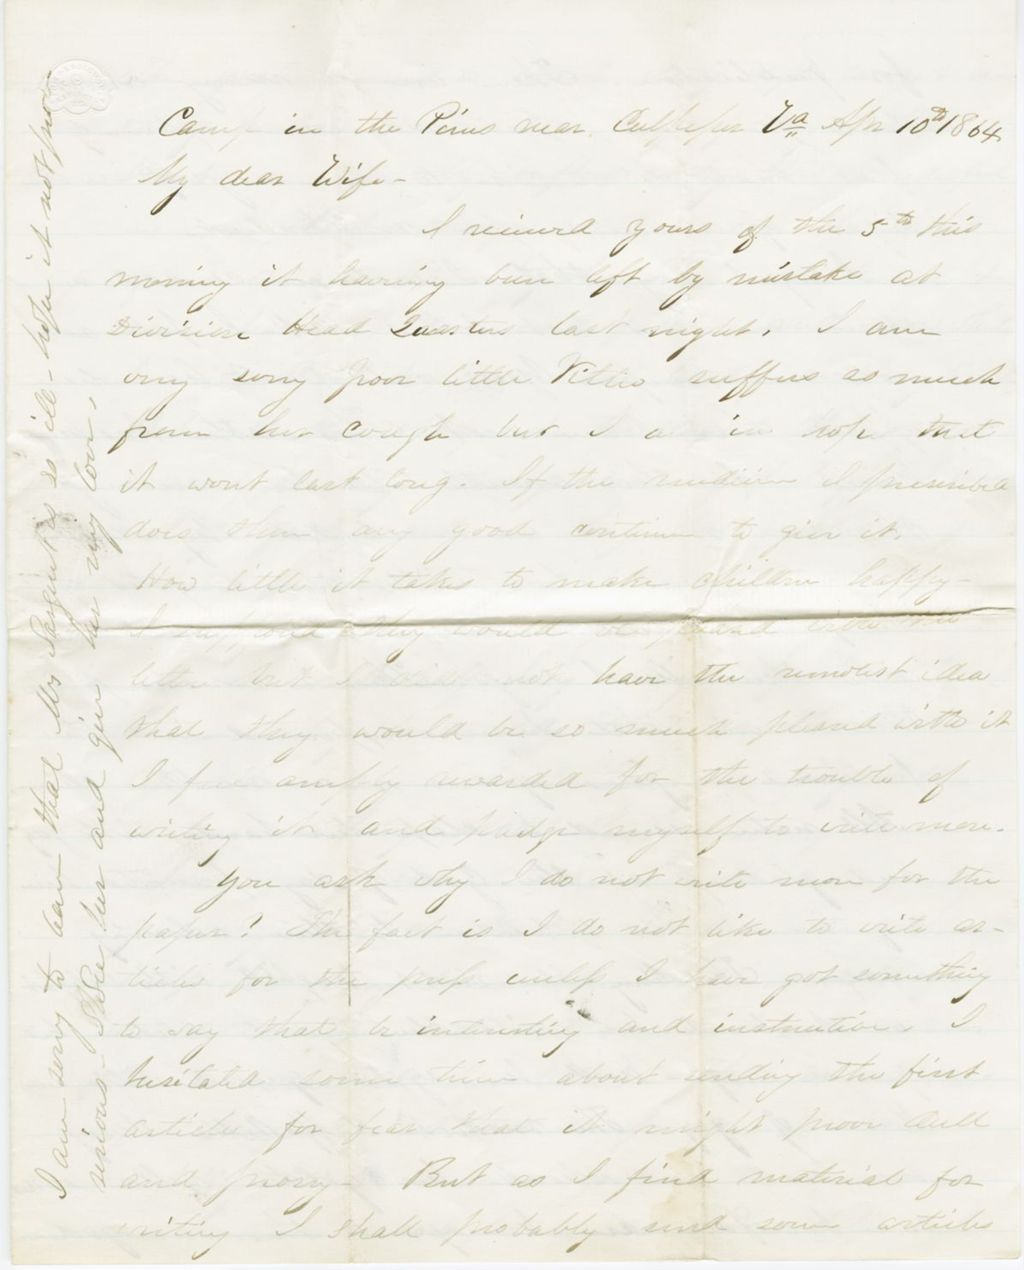 Camp in the Pines near Culpeper Va Apr 10th 1864
My dear Wife -
I recieved yours of the 5th this
morning it having been left by mistake at
Division Head Quarters last night. I am
very sorry poor little Villie suffers so much
from her cough but I am in hope that
it wont last long. If the medicine I prescribed
does them any good continue to give it.
How little it takes to make children happy -
I supposed they would be pleased with the
letter but I did not have the remotest idea
that they would be so much pleased with it
I feel amply rewarded for the trouble of
writing it and pledge myself to write more.
You ask why I do not write more for the
paper? The fact is I do not like to write ar-
ticles for the press unless I have got something
to say that be interesting and instructive. I
hesitated some time about sending the first
article for fear that it might prove dull
and prosy - But as I find material for
writing I shall probably send some articles
I am sorry to learn that Mrs is so ill - hope it not prove
serious - See her and give her my love.